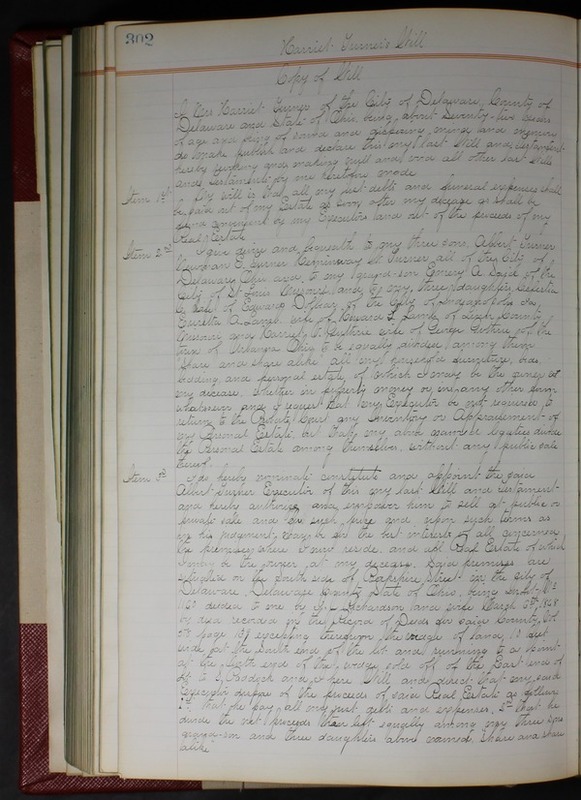 302
Harriet Turner's Will
Copy of Will
I Mrs Harriet Turner of the City of Delaware, County of
Delaware and State of Ohio, being about Seventy-two years
of age and being of sound and disposing mind and memory
do make publish and declare this my last Will and testament
hereby revoking and making null and void all other last Wills
and testaments by me heretofore made
Item 1st My will is that all my just debts and funeral expenses shall
be paid out of my Estate as soon after my decease as shall be
found convenient by my Executor and out of the proceeds of my
Real Estate.
Item 2nd I give devise and bequeath to my three sons, Albert Turner
E. Turner Hemingway W. Turner all of the City of
Delaware Ohio and to my grand-son Emery A. of the
City of St Louis Missouri and to my three daughters
A. wife of Edward of the City of Indianapolis Ia,
A. Lamb, wife of Howard L. Lamb of County
Missouri and Harriet V. Guthrie wife of George Guthrie of the
town of Ohio to be equally divided among them
share and share alike all my household furniture, beds,
bedding and personal estate of which I may be the owner at
my decease, whether in property money or in any other form
whatsoever and I request that my Executor be not required to
return to the Probate Court any Inventory or Appraisement of
my Personal Estate, but that my above named legatees divide
the Personal Estate among themselves, without any public sale
thereof.
Item 3d I do hereby nominate constitute and appoint the said
Albert Turner Executor of this my last Will and testament
and hereby authorize and empower him to sell at public or
private sale and for such price and upon such terms as
in his judgment, may be for the best interests of all concerned
the premises where I now reside, and all Real Estate of which
I may be the owner, at my decease. Said premises are
situated on the South side of Street in the city of
Delaware, Delaware County State of Ohio, being
deeded to me by Richardson and wife March 1868
by deed recorded in the Record of Deeds for said County, Vol.
page excepting therefrom the wedge of land, feet
wide at the South end of the lot and running to a point
at the North end of the wedge sold off of the East side of
to and where I will and direct that my said
Executor dispose of the proceeds of said Real Estate as follows
1st That he pay all my just debts and expenses, 2nd That he
divide the net proceeds then left equally among my three sons
grand-son and three daughters above named, share and share
alike